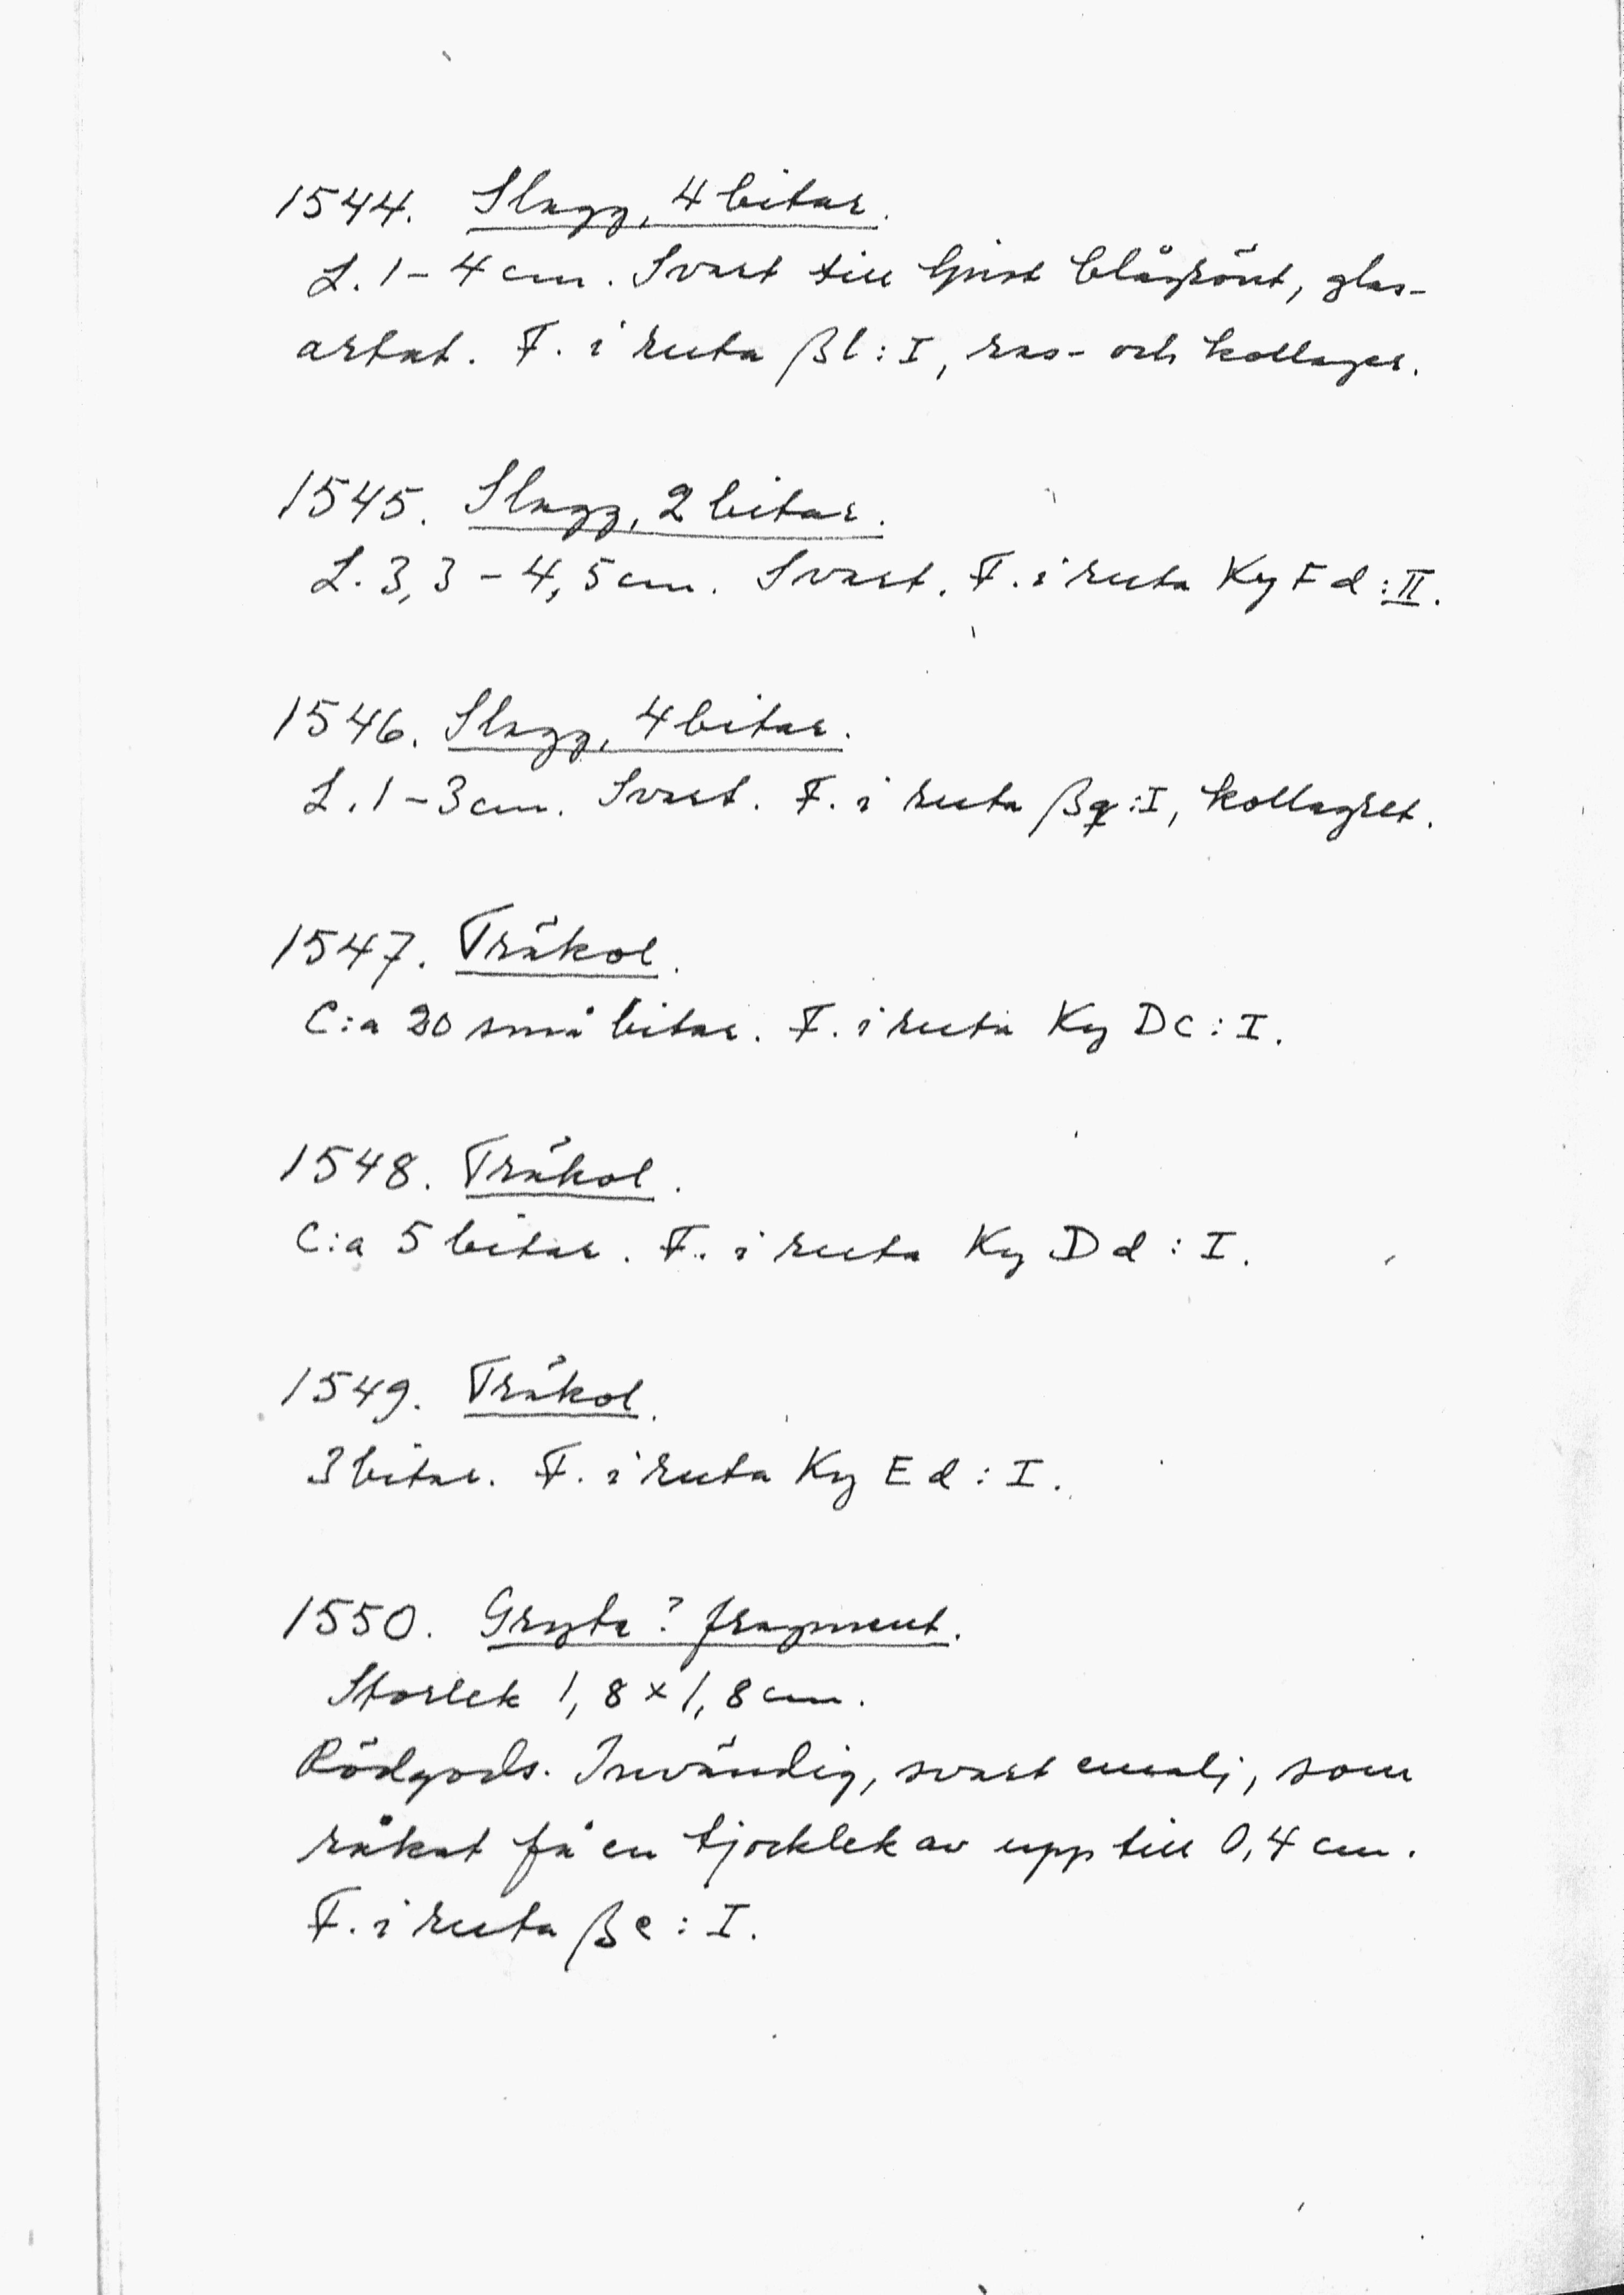 1544. Slagg, 4 bitar.
L. 1-4 cm. Svart till ljust blågrönt, glas-
artat. F. i ruta βl:I, ras- och kollager.
1545. Slagg, 2 bitar.
L. 3,3-4,5 cm. Svart. F. i ruta Ky F d:II.
1546. Slagg, 4 bitar.
L. 1-3 cm. Svart. F. i ruta βq:I, kollagret.
1547. Träkol.
C:a 20 små bitar. F. i ruta Ky D c:I.
1548. Träkol.
C:a 5 bitar. F. i ruta Ky D d:I.
1549. Träkol.
3 bitar. F. i ruta Ky E d:I.
1550. Gryta? fragment.
Storlek 1,8 x 1,8 cm.
Rödgods. Invändig, svart emalj, som
råkat få en tjocklek av upp till 0,4 cm.
F. i ruta βe:I.